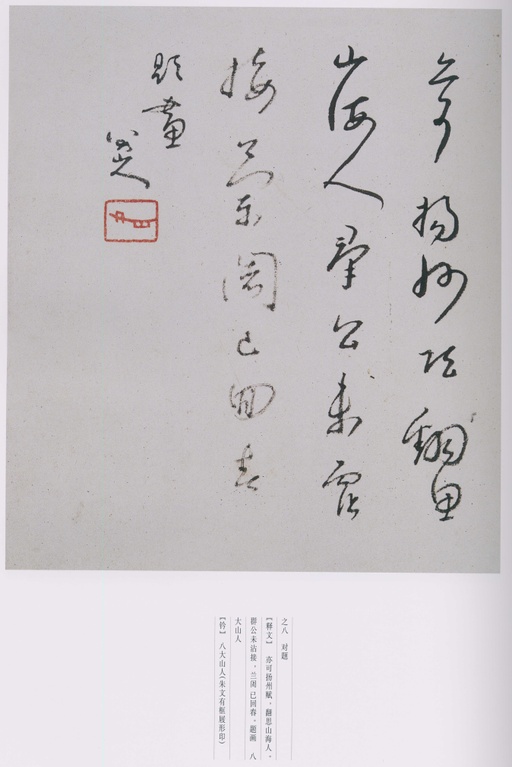 亦可揚州賦翻思
山海人羣公未霑
接蘭闍已回春
題畫
八大山人
之八 对题
【释文】 亦可扬州赋，翻思山海人。
群公未沾接，兰阇已回春。题画 八
大山人
【钤】 八大山人（朱文有框屐形印）